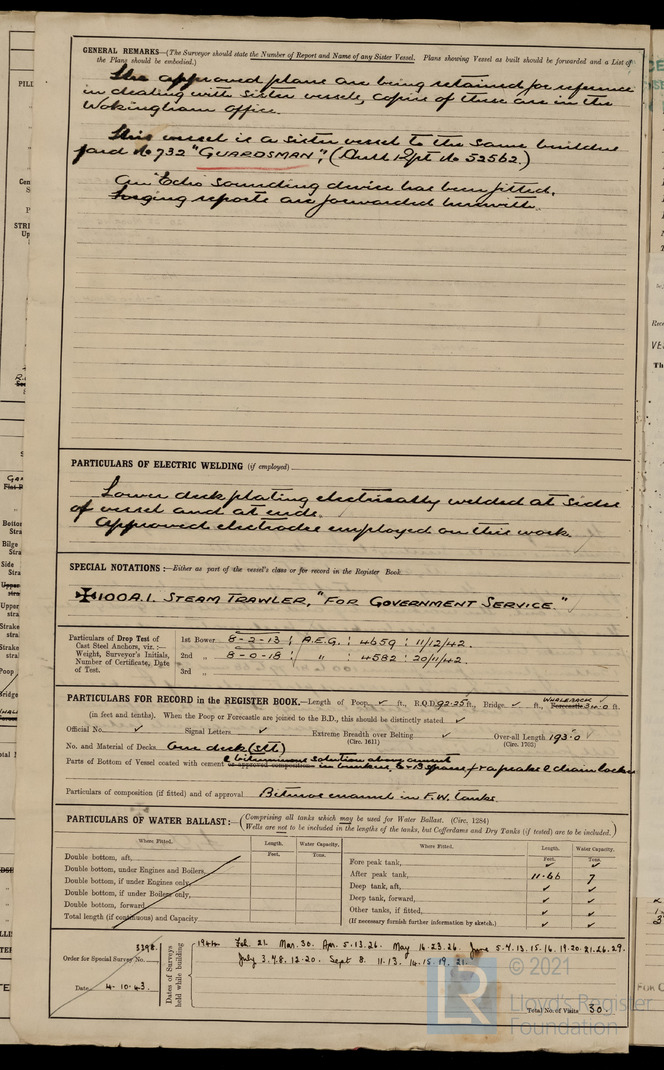 GENERAL REMARKS—(The Surveyor should state the Number of Report and Name of any Sister Vessel. Plans showing Vessel as built should be forwarded and a List of
the Plans should be embodied.)
The approved plans are being retained for reference
in dealing with sister vessels, copies of these are in the
Wokingham Office.
This vessel is a sister vessel to the same builders
yard No 732 "GUARDSMAN", (Hull Rpt No 52562.)
An Echo sounding device has been fitted.
Forging reports are forwarded herewith.
PARTICULARS OF ELECTRIC WELDING (if employed)
Lower deck plating electrically welded at sides
of vessel and at ends.
Approved electrodes employed on this work.
SPECIAL NOTATIONS:—Either as part of the vessel's class or for record in the Register Book.
✠100A.1. STEAM TRAWLER, "FOR GOVERNMENT SERVICE."
Particulars of Drop Test of
Cast Steel Anchors, viz.:—
Weight, Surveyor's Initials,
Number of Certificate, Date
of Test.
1st Bower 8-2-13 : A.E.G. : 4659 : 11/12/42.
2nd „ 8-0-18 : „ : 4582 : 20/11/42.
3rd „
PARTICULARS FOR RECORD in the REGISTER BOOK.—Length of Poop ✓ ft., R.Q.D. 92.25 ft., Bridge ✓ ft., WHALEBACK Forecastle 34.0 ft.
(in feet and tenths). When the Poop or Forecastle are joined to the B.D., this should be distinctly stated ✓
Official No. ✓ Signal Letters ✓ Extreme Breadth over Belting ✓ Over-all Length 193.0
(Circ. 1611) (Circ. 1703)
No. and Material of Decks One deck (stl)
Parts of Bottom of Vessel coated with cement or approved composition bituminous solution above cement
in bunkers, chain locker
Particulars of composition (if fitted) and of approval Bitmos enamel in F.W. tanks.
PARTICULARS OF WATER BALLAST:—(Comprising all tanks which may be used for Water Ballast. (Circ. 1284)
Wells are not to be included in the lengths of the tanks, but Cofferdams and Dry Tanks (if tested) are to be included.)
Where Fitted. Length. Water Capacity. Where Fitted. Length. Water Capacity.
Feet. Tons. Feet. Tons.
Double bottom, aft,
Double bottom, under Engines and Boilers,
Double bottom, if under Engines only,
Double bottom, if under Boilers only,
Double bottom, forward,
Total length (if continuous) and Capacity
Fore peak tank, ✓ ✓
After peak tank, 11.66 7
Deep tank, aft, ✓ ✓
Deep tank, forward, ✓ ✓
Other tanks, if fitted, ✓ ✓
(If necessary furnish further information by sketch.) ✓ ✓
Order for Special Survey No. 3398.
Date 4.10.43.
Dates of Surveys
held while building
1944 Feb. 21. Mar. 30. Apr. 5.13.26. May 16.23.26. June 5.7.13.15.16.19.20.21.26.29.
July 3.4.8.12.20. Sept 8. 11.13. 14.15.19.21.
Total No. of Visits 30.
© 2021
Lloyd's Register
Foundation
LR